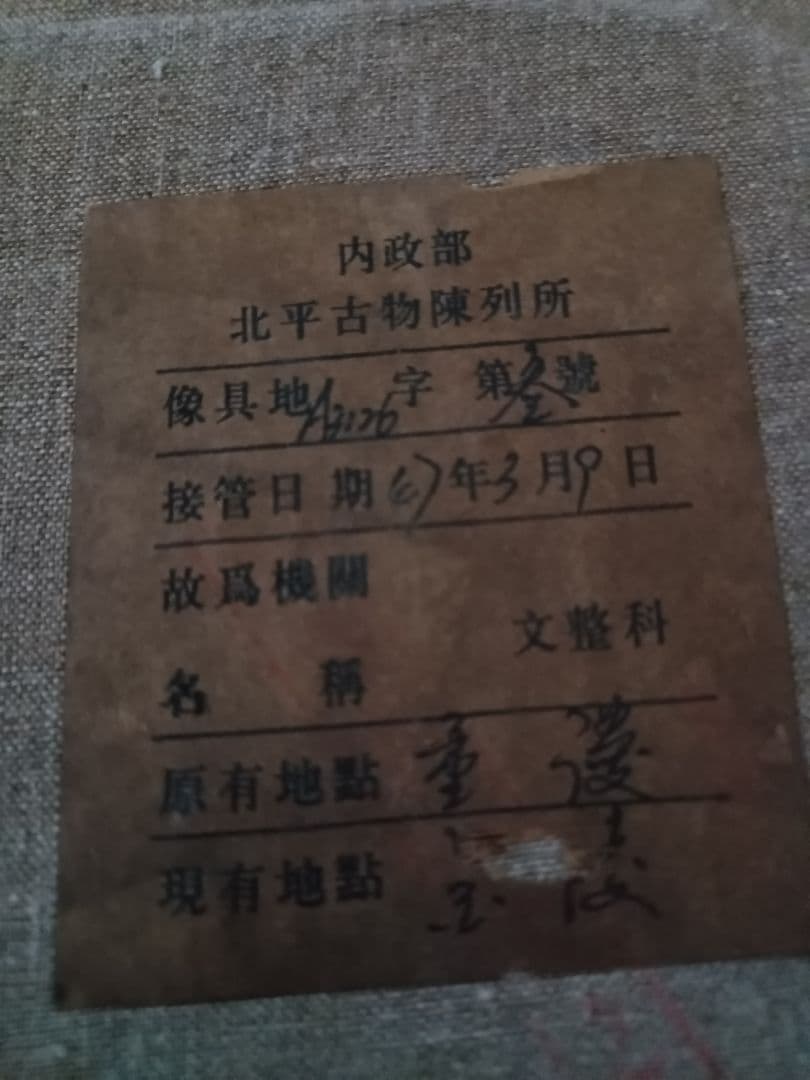 内政部
北平古物陳列所
像具地 字 第叁號
接管日期 67年3月9日
故爲機關
文整科
名稱
原有地點 重慶
現有地點